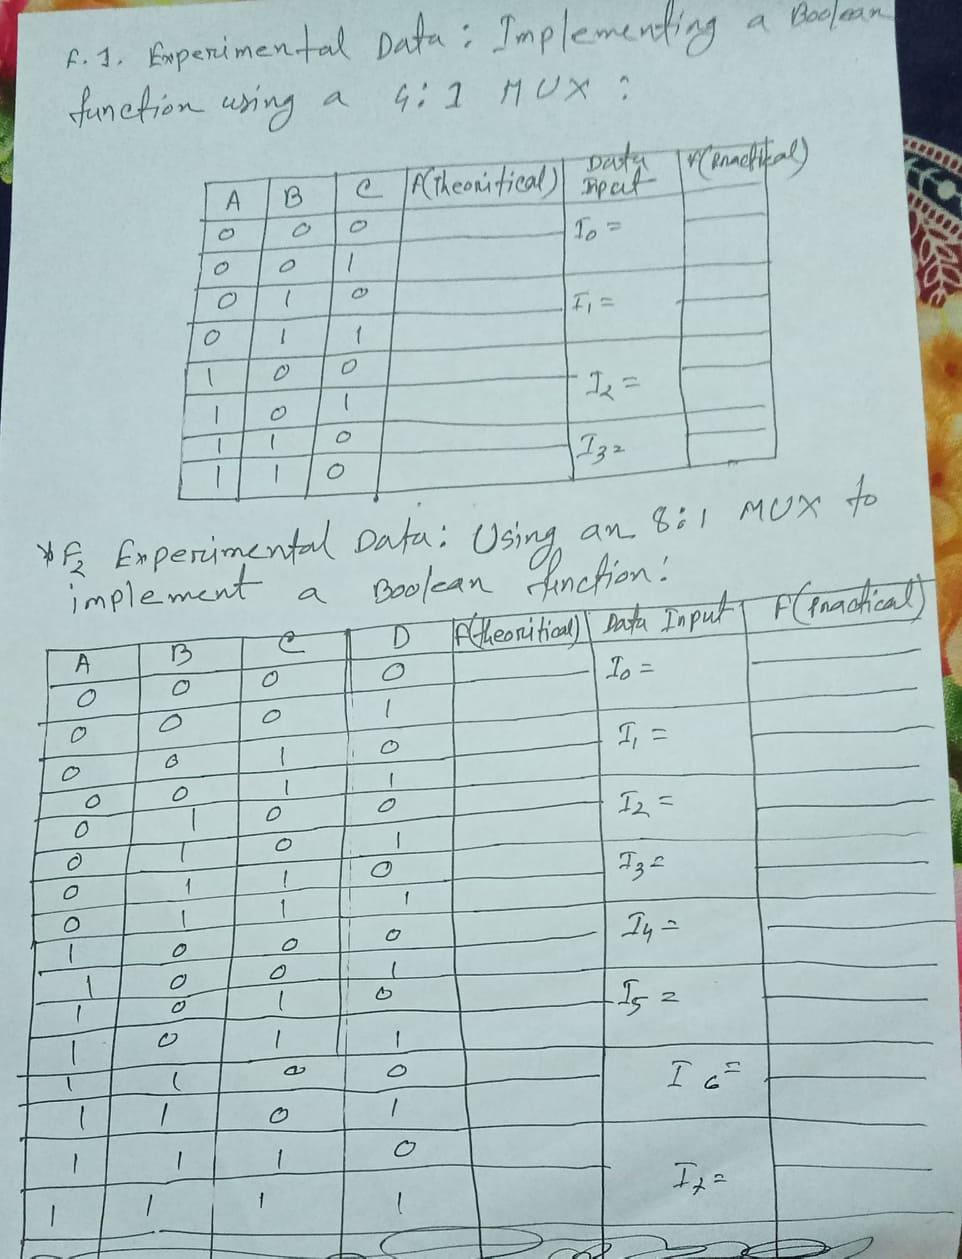 F.1. Experimental Data: Implementing a Boolean
function using a 4:1 MUX :
A B C F(Theoritical) Data Input F(Practikal)
0 0 0 I0 =
0 0 1
0 1 0 I1 =
0 1 1
1 0 0 I2 =
1 0 1
1 1 0 I3 =
1 1 0
* F2 Experimental Data: Using an 8:1 MUX to
implement a Boolean function:
A B C D F(theoritical) Data Input F(Practical)
0 0 0 0 I0 =
0 0 0 1
0 0 1 0 I1 =
0 0 1 1
0 1 0 0 I2 =
0 1 0 1
0 1 1 0 I3 =
0 1 1 1
1 0 0 0 I4 =
1 0 0 1
1 0 1 0 I5 =
1 0 1 1
1 1 0 0 I6 =
1 1 0 1
1 1 1 0 I7 =
1 1 1 1